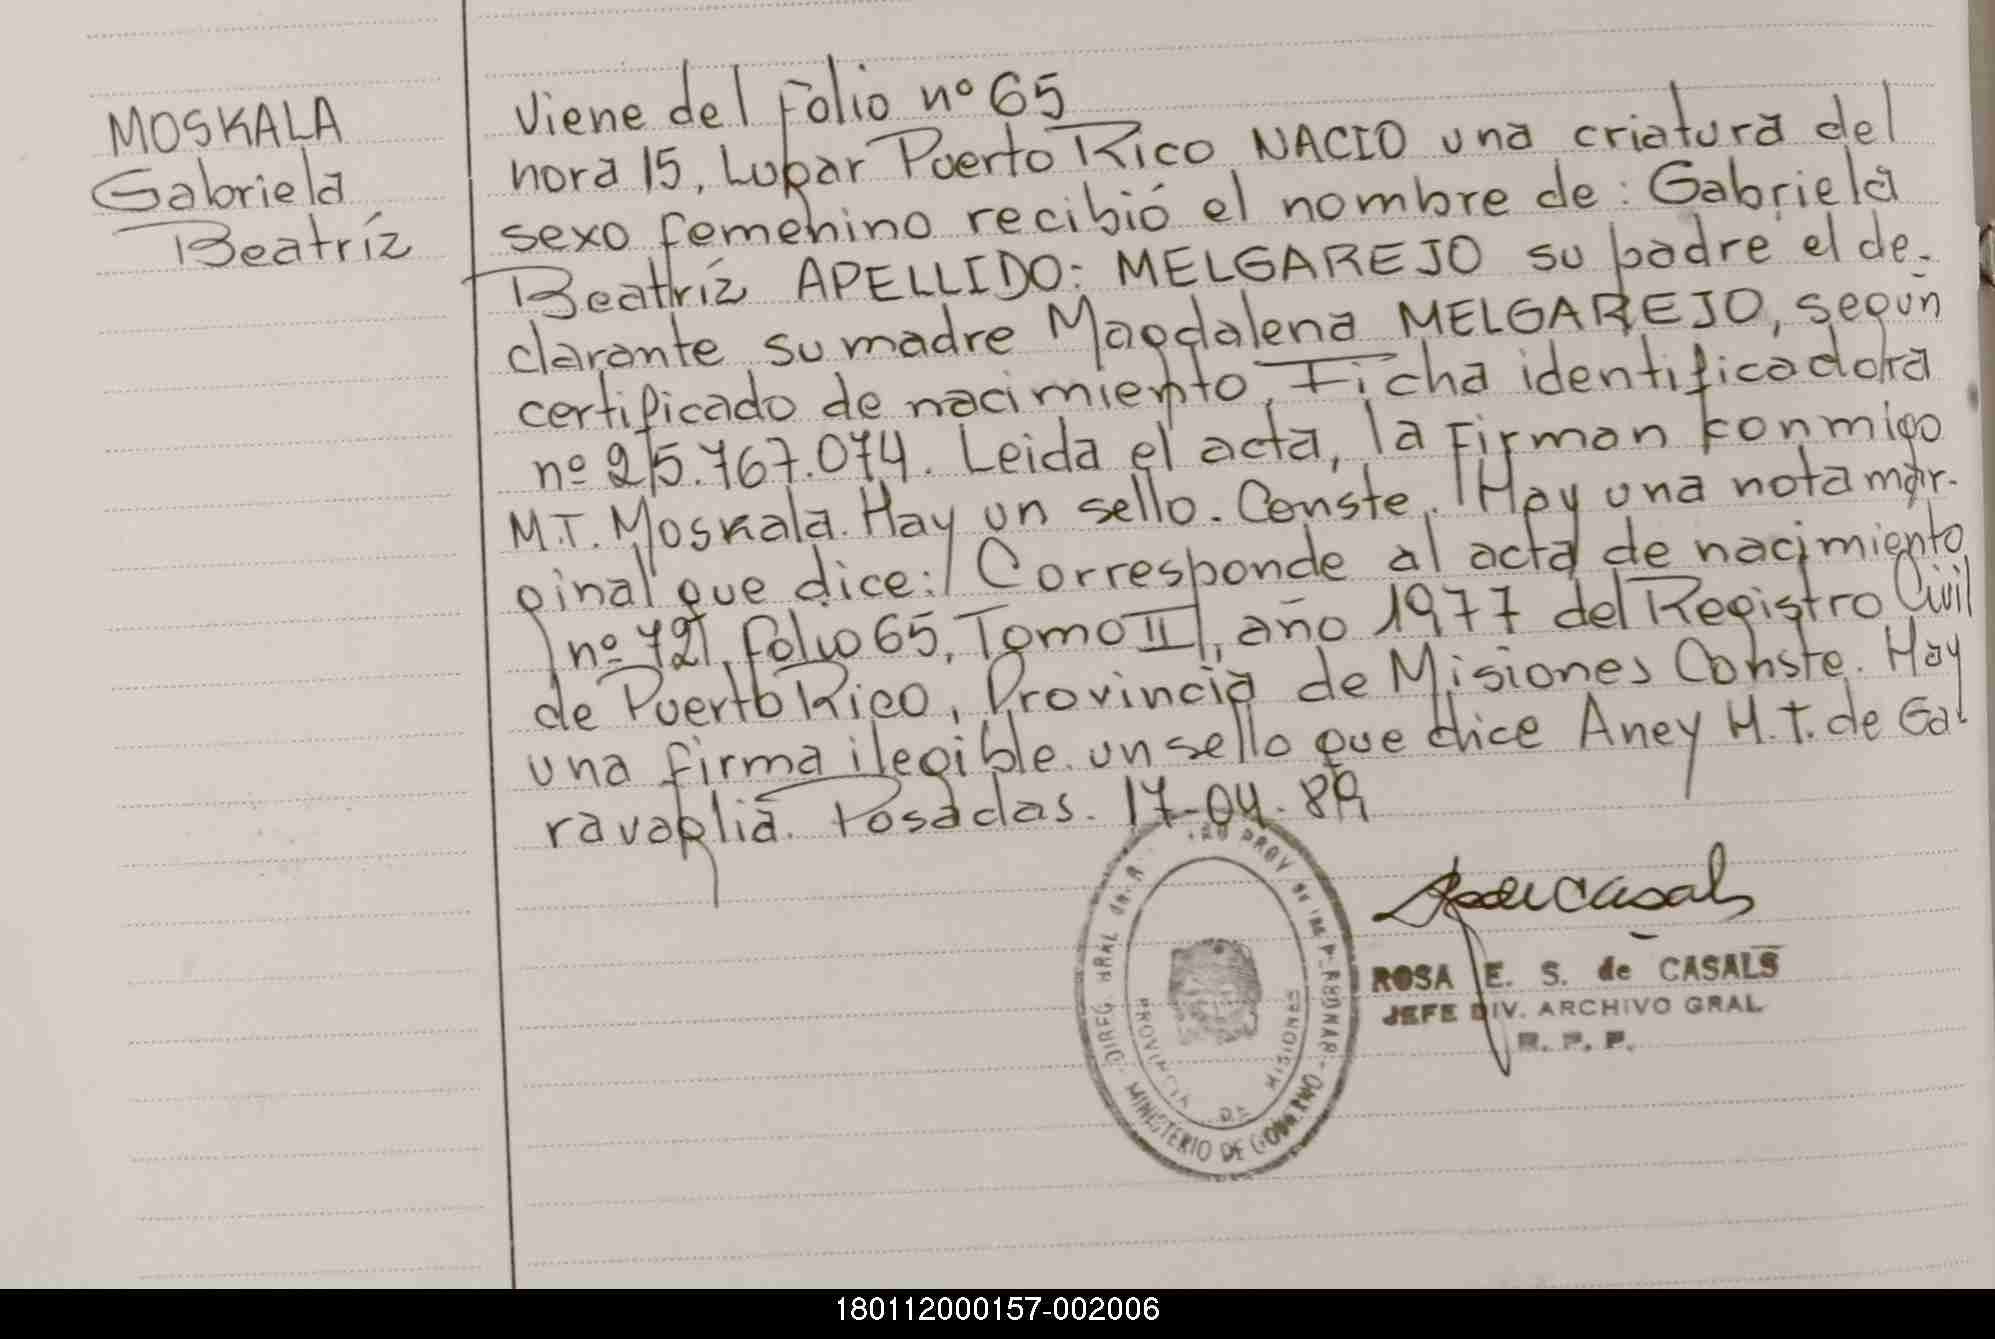 MOSKALA
Gabriela
Beatríz
Viene del Folio nº 65
hora 15, Lugar Puerto Rico NACIO una criatura del
sexo femenino recibió el nombre de: Gabriela
Beatríz APELLIDO: MELGAREJO su padre el de-
clarante su madre Magdalena MELGAREJO, según
certificado de nacimiento, Ficha identificadora
nº 25.767.074. Leida el acta, la firman conmigo
M.T. Moskala. Hay un sello. Conste. Hay una nota mar-
ginal que dice: Corresponde al acta de nacimiento
nº 721, folio 65, Tomo II, año 1977 del Registro Civil
de Puerto Rico, Provincia de Misiones Conste. Hay
una firma ilegible. un sello que dice Aney M.T. de Ga
ravaglia. Posadas. 17-04-89
PROV de las P
MINISTERIO DE GOBIERNO
PROVINCIA DE MISIONES
ROSA E. S. de CASALS
JEFE DIV. ARCHIVO GRAL
R. P. P.
180112000157-002006